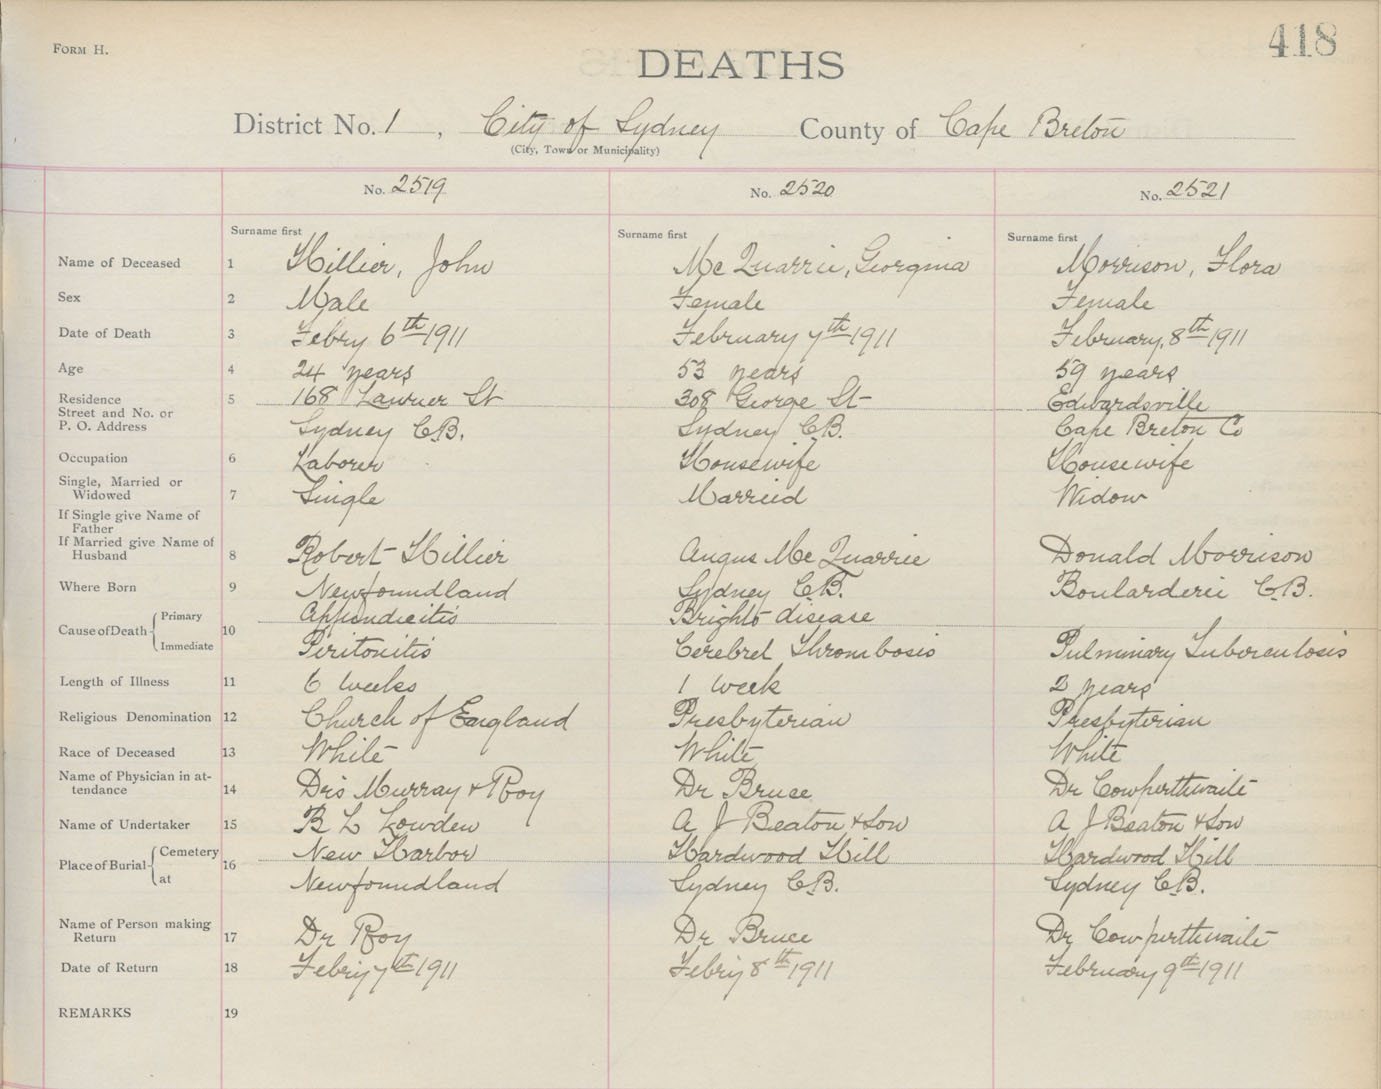 FORM H.
418
DEATHS
District No. 1, City of Sydney County of Cape Breton
(City, Town or Municipality)
No. 2519 No. 2520 No. 2521
Surname first Surname first Surname first
Name of Deceased 1 Hillier, John Mc Quarrie, Georgina Morrison, Flora
Sex 2 Male Female Female
Date of Death 3 Febry 6th 1911 February 7th 1911 February, 8th 1911
Age 4 24 years 53 years 59 years
Residence 5 168 St 308 George St Edwardsville
Street and No. or
P. O. Address Sydney C.B. Sydney C.B. Cape Breton Co
Occupation 6 Laborer Housewife Housewife
Single, Married or
Widowed 7 Single Married Widow
If Single give Name of
Father
If Married give Name of
Husband 8 Robert Hillier Angus Mc Quarrie Donald Morrison
Where Born 9 Newfoundland Sydney C.B. Boularderie C.B.
Cause of Death 10 Primary Appendicitis Brights disease
Immediate Peritonitis Cerebrel Thrombosis Pulminary Tuberculosis
Length of Illness 11 6 weeks 1 week 2 years
Religious Denomination 12 Church of England Presbyterian Presbyterian
Race of Deceased 13 White White White
Name of Physician in at-
tendance 14 Drs Murray & Roy Dr Bruce Dr Cowperthwaite
Name of Undertaker 15 B L Lowden A J Beaton & Son A J Beaton & Son
Place of Burial 16 Cemetery New Harbor Hardwood Hill Hardwood Hill
at Newfoundland Sydney C.B. Sydney C.B.
Name of Person making
Return 17 Dr Roy Dr Bruce Dr Cowperthwaite
Date of Return 18 Febriy 7th 1911 Febriy 8th 1911 February 9th 1911
REMARKS 19